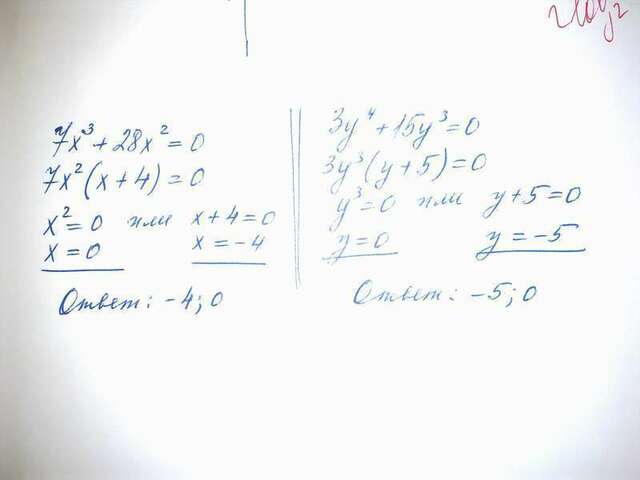 7x³ + 28x² = 0
7x² (x + 4) = 0
x² = 0 или x + 4 = 0
x = 0 x = -4
Ответ: -4; 0
3y⁴ + 15y³ = 0
3y³ (y + 5) = 0
y³ = 0 или y + 5 = 0
y = 0 y = -5
Ответ: -5; 0